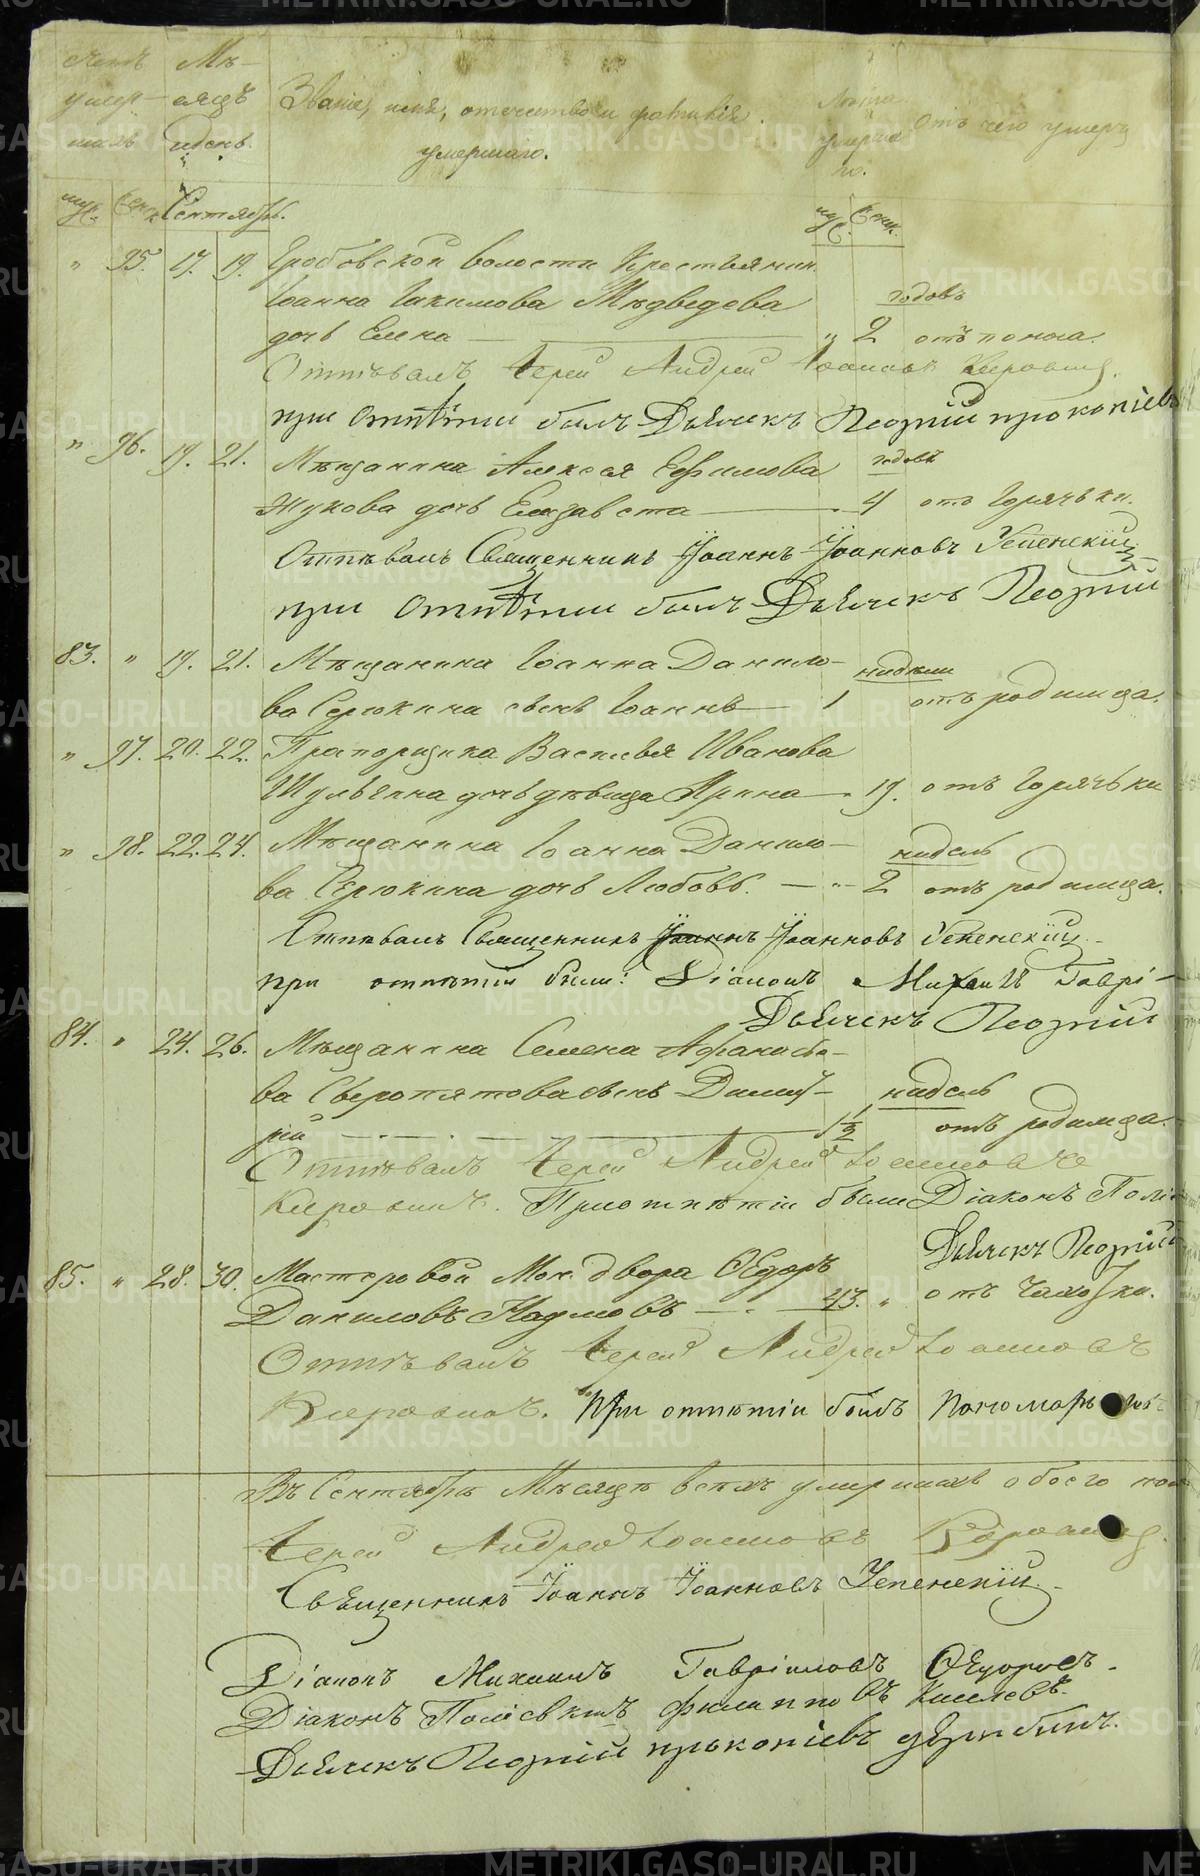 Счетъ умер- шихъ
Мѣ- сяцъ и день.
Званіе, имя, отчество и фамилія умершаго.
Лѣта умерша го.
Отъ чего умеръ
муж. женск. Сентябрь. муж. женск.
" 95. 17. 19. Гробовской волости Крестьянина
Іоанна Іакимова Медведева годовъ
дочь Елена — " 2 отъ поноса.
Отпѣвалъ Іерей Андрей Іоанновъ
при отпѣтіи былъ Дьячекъ Георгій прокопіевъ
" 96. 19. 21. Мѣщанина Алексея Ефимова годовъ
Жукова дочь Елизавета — 4 отъ Горячьки.
Отпѣвалъ Священникъ Іоаннъ Іоанновъ Успенскій
при отпѣтіи былъ Дьячекъ Георгій
83. " 19. 21. Мѣщанина Іоанна Данило- недѣли
ва Серюкина сынъ Іоаннъ — 1 отъ родимца.
" 97. 20. 22. Прапорщика Василья Иванова
Шульгина дочь дѣвица Арина — 19. отъ Горячьки
" 98. 22. 24. Мѣщанина Іоанна Данило- недель
ва Серюкина дочь Любовь. — " 2 отъ родимца.
Отпѣвалъ Священникъ Іоаннъ Іоанновъ Успенскій
при отпѣтіи были: Діаконъ Михаилъ Гаврі-
Дьячекъ Георгій
84. " 24. 26. Мѣщанина Семена Афанасье-
ва Сверопятова сынъ Димит- недель
рій — 1½ отъ родимца.
Отпѣвалъ Іерей Андрей Іоанновъ
При отпѣтіи были Діаконъ Поліе
Дьячекъ Георгій
85. " 28. 30. Мастеровой Мон. двора Ѳедоръ
Даниловъ Наумовъ — 43. " отъ чахотки.
Отпѣвалъ Іерей Андрей Іоанновъ
При отпѣтіи былъ Пономарь
Въ Сентябрѣ Мѣсяцѣ всехъ умершихъ обоего пола
Іерей Андрей Іоанновъ
Священникъ Іоаннъ Іоанновъ Успенскій.
Діаконъ Михаилъ Гавріиловъ Ѳедоровъ.
Діаконъ Поліевктъ Филипповъ Киселевъ.
Дьячекъ Георгій прокопіевъ